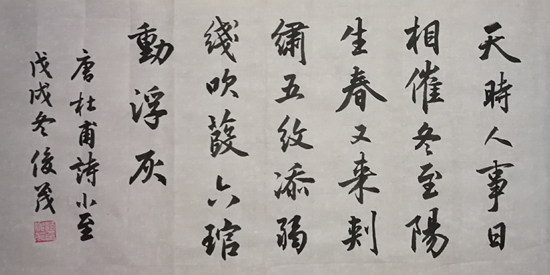 天時人事日
相催冬至陽
生春又来刺
繡五紋添弱
綫吹葭六琯
動浮灰
唐杜甫詩小至
戊戌冬俊茂